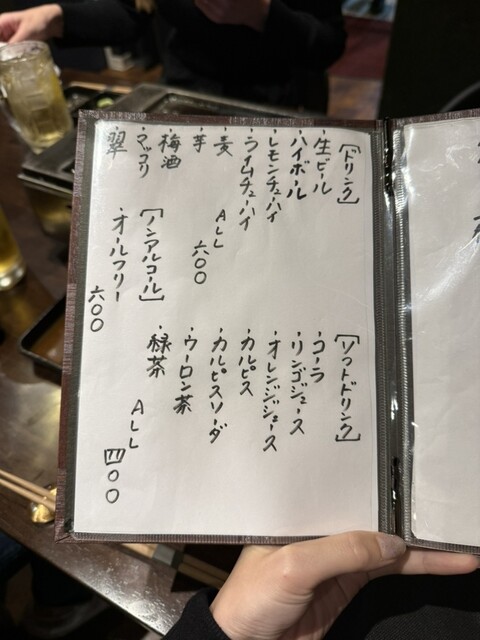 [ドリンク]
・生ビール
・ハイボール
・レモンチューハイ
・ライムチューハイ
・麦
・芋
ALL
六〇〇
梅酒
・マッコリ
・翠
[ノンアルコール]
・オールフリー
六〇〇
[ソフトドリンク]
・コーラ
・リンゴジュース
・オレンジジュース
・カルピス
・カルピスソーダ
・ウーロン茶
・緑茶
ALL
四〇〇